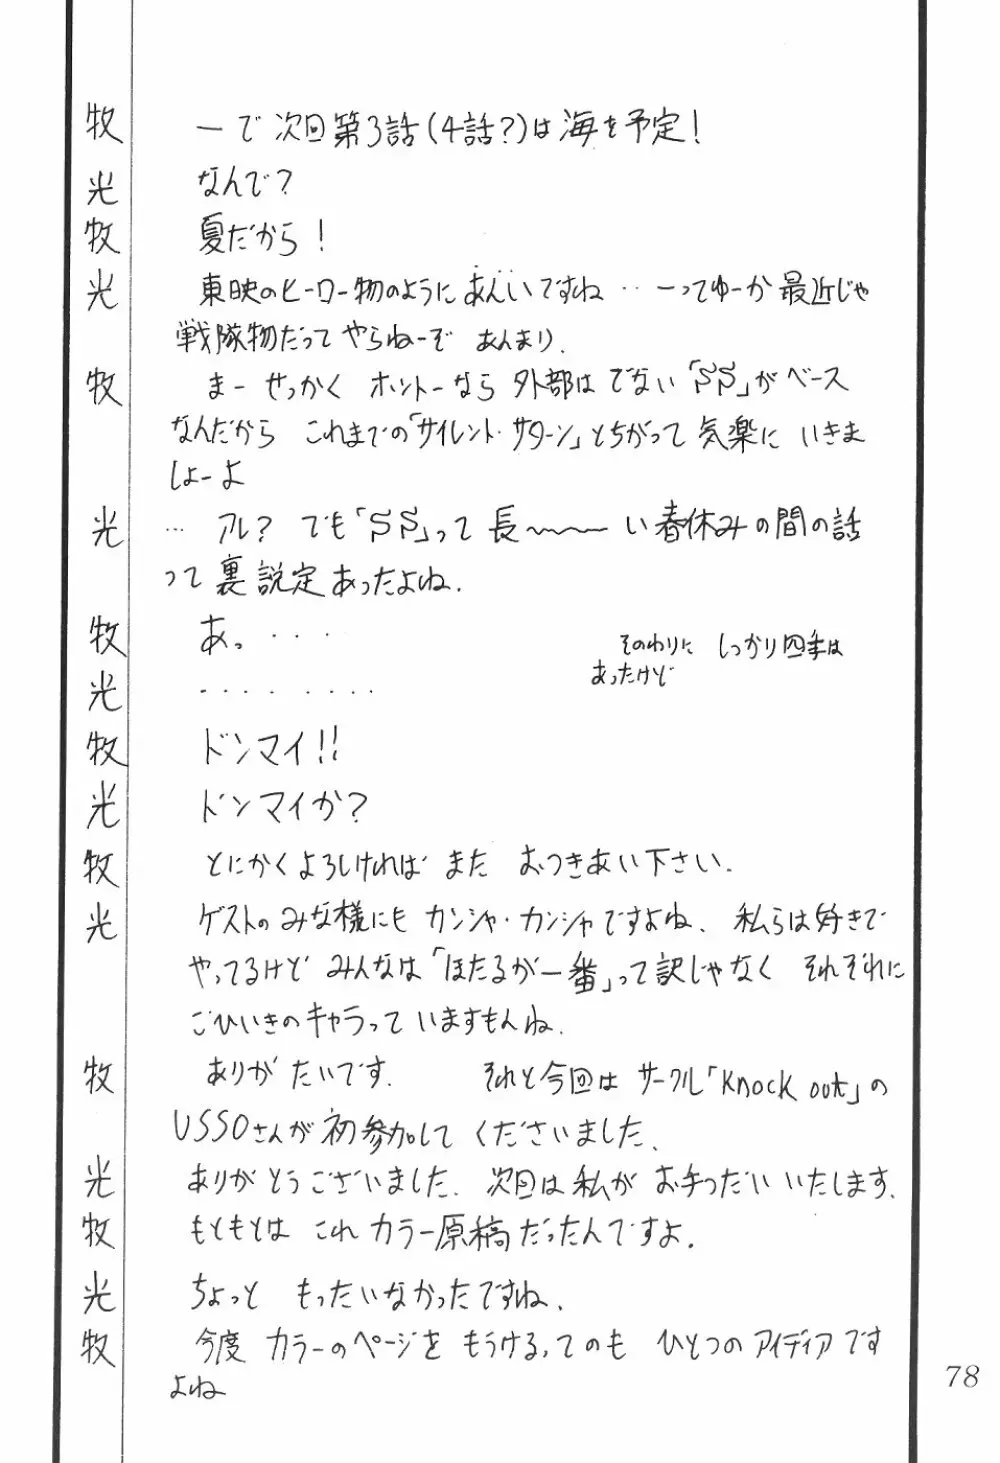 牧 ーで 次回第3話(4話?)は海を予定!
光 なんで?
牧 夏だから!
光 東映のヒーロー物のようにあんいですね‥ーってゆーか最近じゃ
戦隊物だって やらねーぞ あんまり.
牧 まー せっかく ホントーなら 外部はでない「SS」がベース
なんだから これまでの「サイレント・サターン」とちがって 気楽に いきま
しょーよ
光 … アレ? でも「SS」って 長〜〜〜い春休みの間の話
って裏説定あったよね.
牧 あっ・・・・
そのわりに しっかり四季は
あったけど
光 ・・・・ ・・・・
牧 ドンマイ!!
光 ドンマイか?
牧 とにかくよろしければ また おつきあい下さい.
光 ゲストのみな様にも カンシャ・カンシャですよね. 私らは好きで
やってるけど みんなは「ほたるが一番」って訳じゃなく それぞれに
ごひいきのキャラって いますもんね.
牧 ありがたいです. それと今回は サークル「Knock out」の
USSOさんが初参加して くださいました.
光 ありがとうございました. 次回は私が お手つだいいたします.
牧 もともとは これ カラー原稿だったんですよ.
光 ちょっと もったいなかったですね.
牧 今度 カラーのページを もうける,てのも ひとつの アイディアです
よね
78